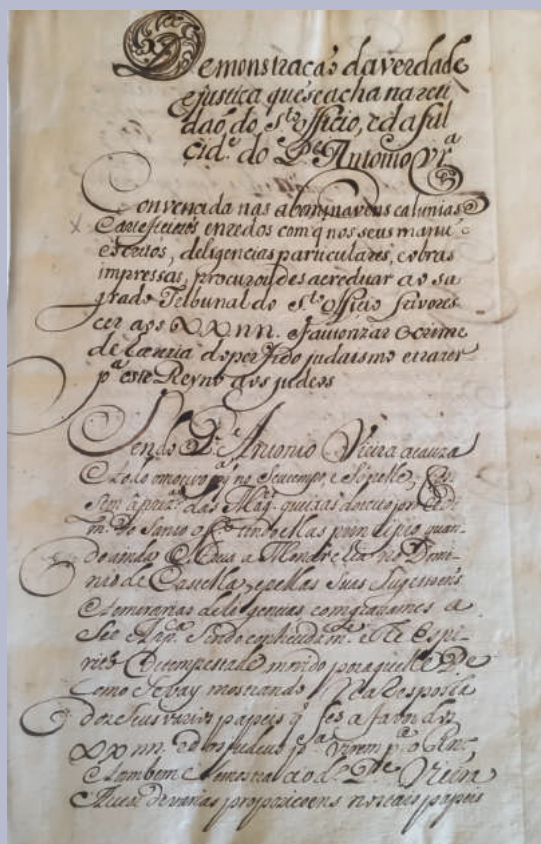 Demonstração da verdade
e justica que se acha na reti
daõ, do S.to Officio, e da fal
cid.e do P.e Antonio Vr.a
Convencida nas abominaveis calunias
e artificiosos enredos com q nos seus manu
escritos, deligencias particulares, e obras
impressas, procurou desacreditar ao sa
grado Tribunal do S.to Officio favores
cer aos XXnn. e autorizar o crime
de Lezeria do perfido judaismo e trazer
p.a este Reyno aos judeos
Sendo o P.e Antonio Vieira a cauza
e todo o motivo p q no seu tempo, e so pelle,
das Mag. queixas do recto
m.to do Santo Off. tendo ellas principio quan
do ainda estava a Monarchia no Domi
nio de Castella, e pellas suas sugestoens
e temerarias deligencias com gravames a
See Ap.ca sendo
rito de tempestade movido por aquelle P.e
como se vay mostrando na Resposta
dos seus varios papeis q fes a favor dos
XXnn. e dos judeus p.a virem p.a o Rn.o,
e tambem se demostra ao d.o P.e Vieira
de varias proposicoens nos seus papeis